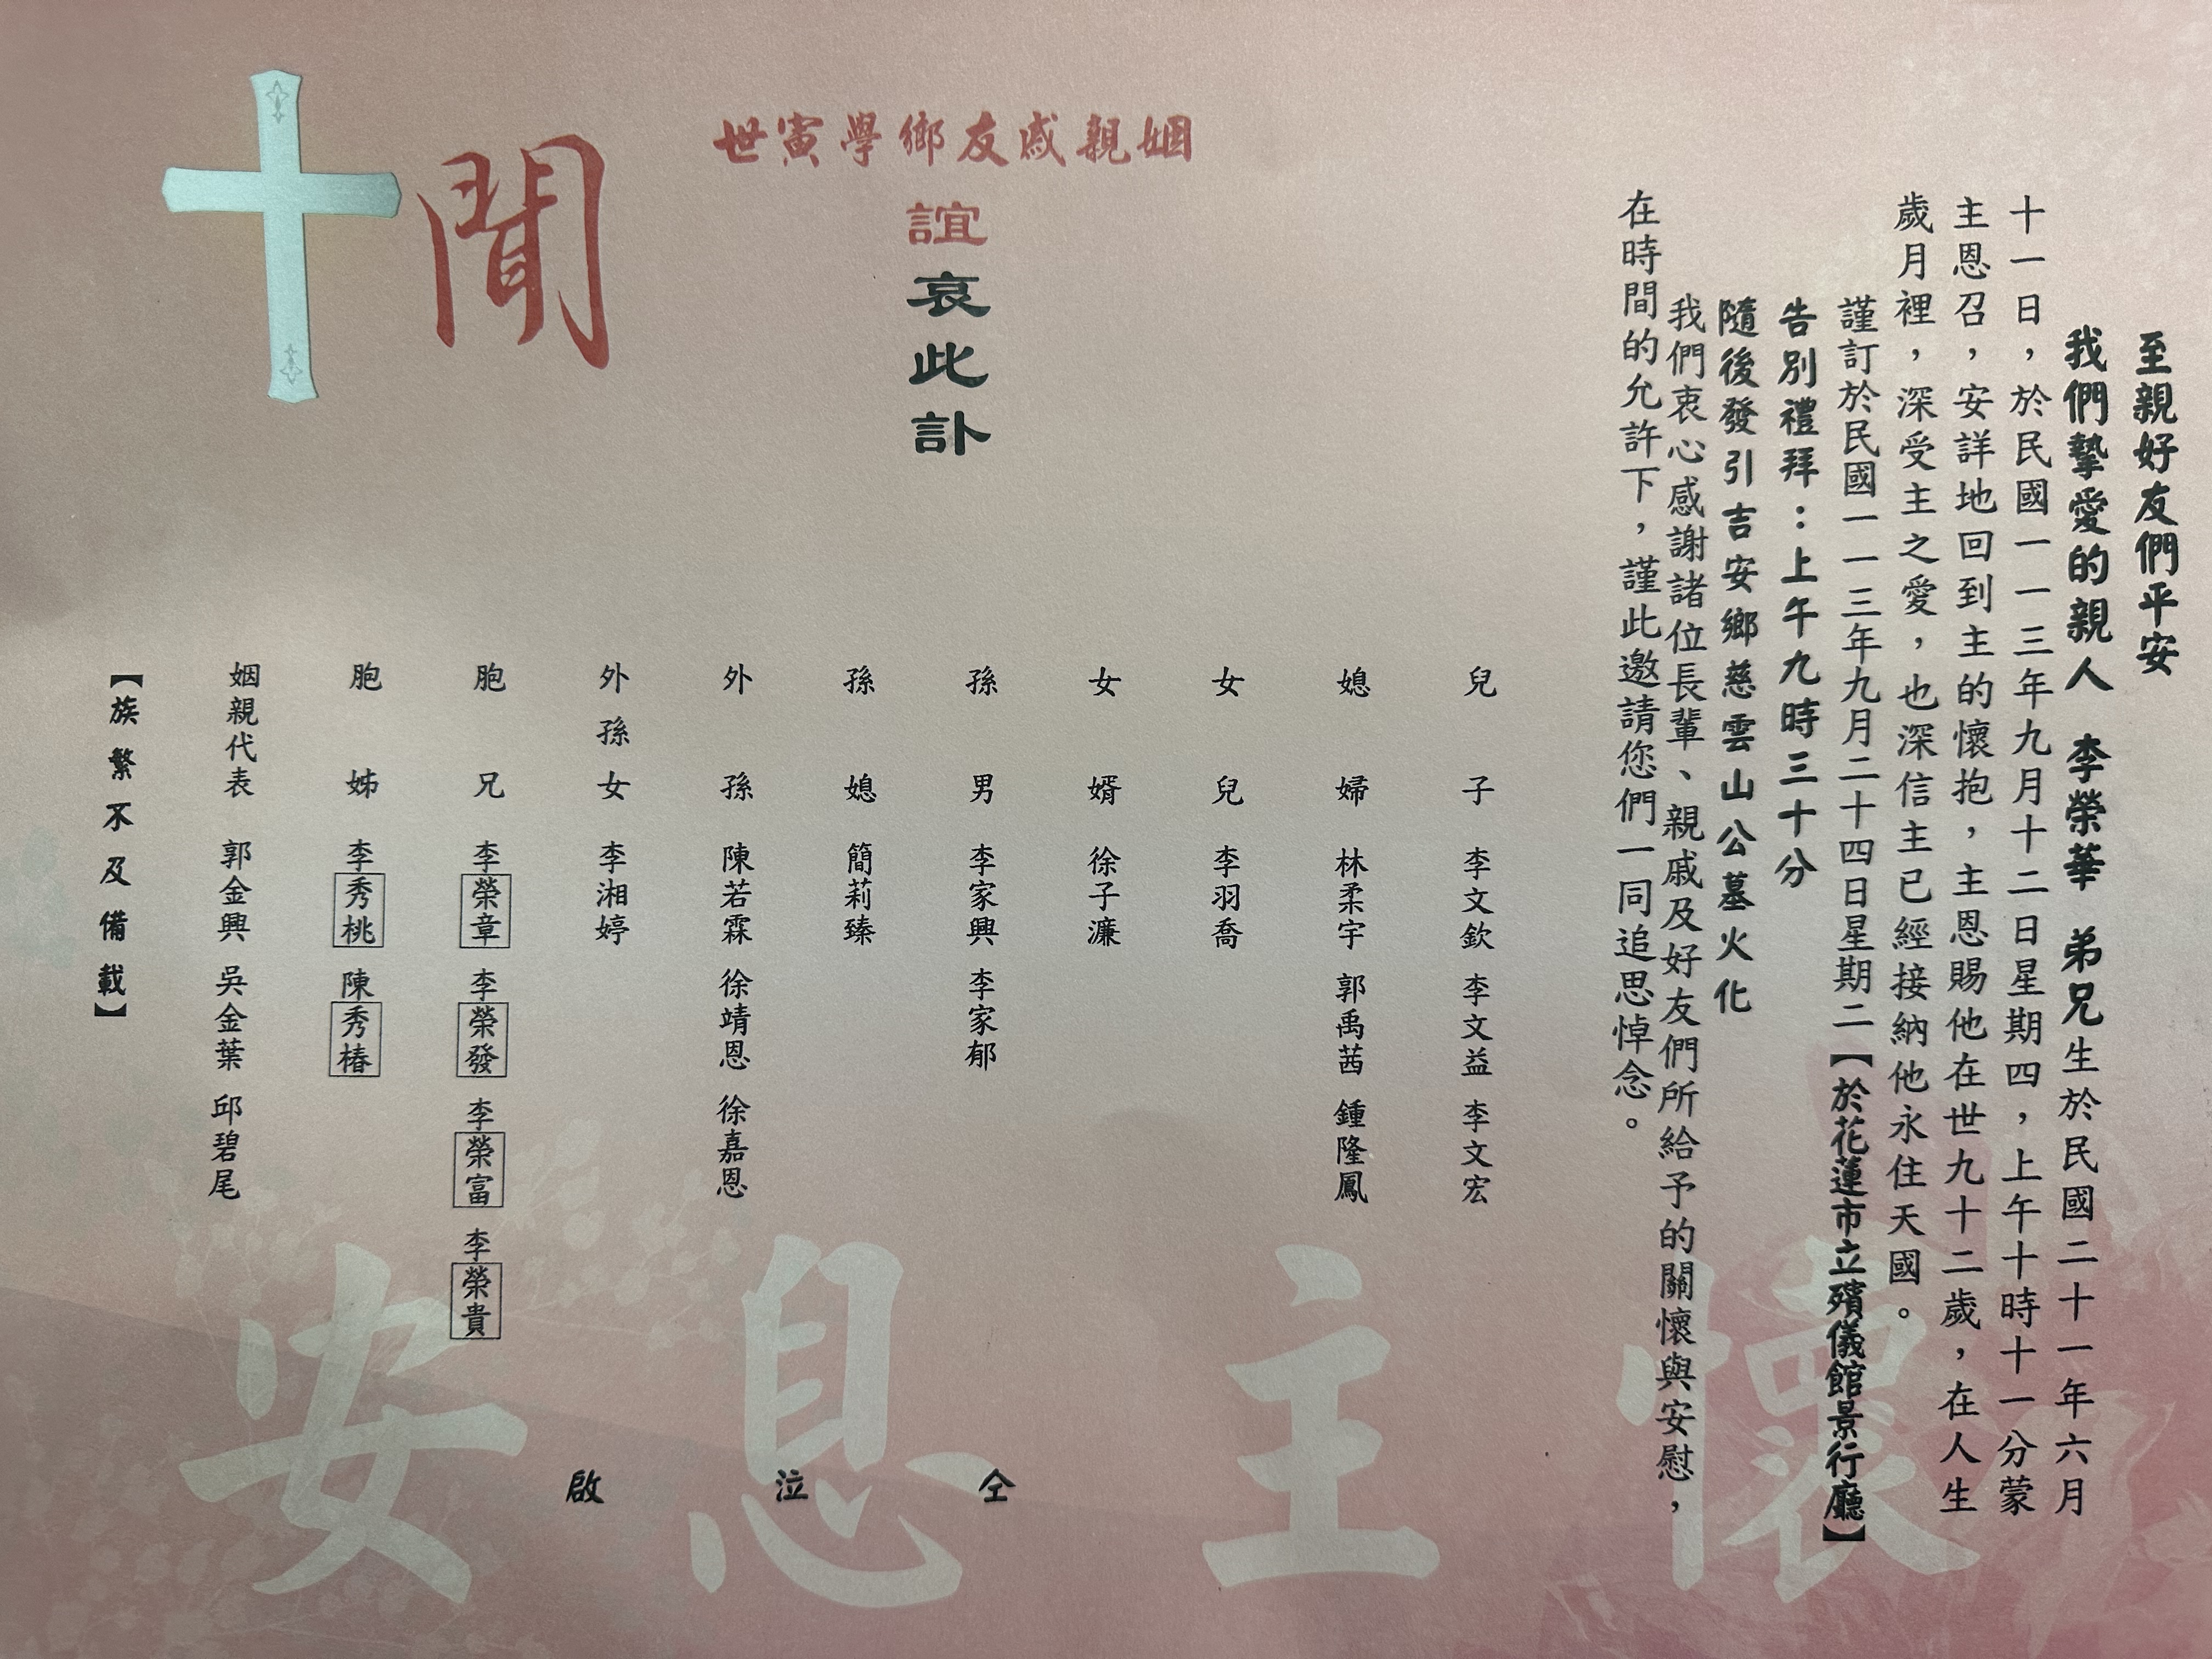 至親好友們平安
我們摯愛的親人 李榮華 弟兄生於民國二十一年六月
十一日，於民國一一三年九月十二日星期四，上午十時十一分蒙
主恩召，安詳地回到主的懷抱，主恩賜他在世九十二歲，在人生
歲月裡，深受主之愛，也深信主已經接納他永住天國。
謹訂於民國一一三年九月二十四日星期二【於花蓮市立殯儀館景行廳】
告別禮拜：上午九時三十分
隨後發引吉安鄉慈雲山公墓火化
我們衷心感謝諸位長輩、親戚及好友們所給予的關懷與安慰，
在時間的允許下，謹此邀請您們一同追思悼念。
兒子 李文欽 李文益 李文宏
媳婦 林柔宇 郭禹茜 鍾隆鳳
女兒 李羽喬
女婿 徐子濂
孫男 李家興 李家郁
孫媳 簡莉臻
外孫 陳若霖 徐靖恩 徐嘉恩
外孫女 李湘婷
胞兄 李榮章 李榮發 李榮富 李榮貴
胞姊 李秀桃 陳秀椿
姻親代表 郭金興 吳金葉 邱碧尾
【族繁不及備載】
仝泣啟
姻親戚友鄉學寅世
誼哀此訃
聞
懷主息安